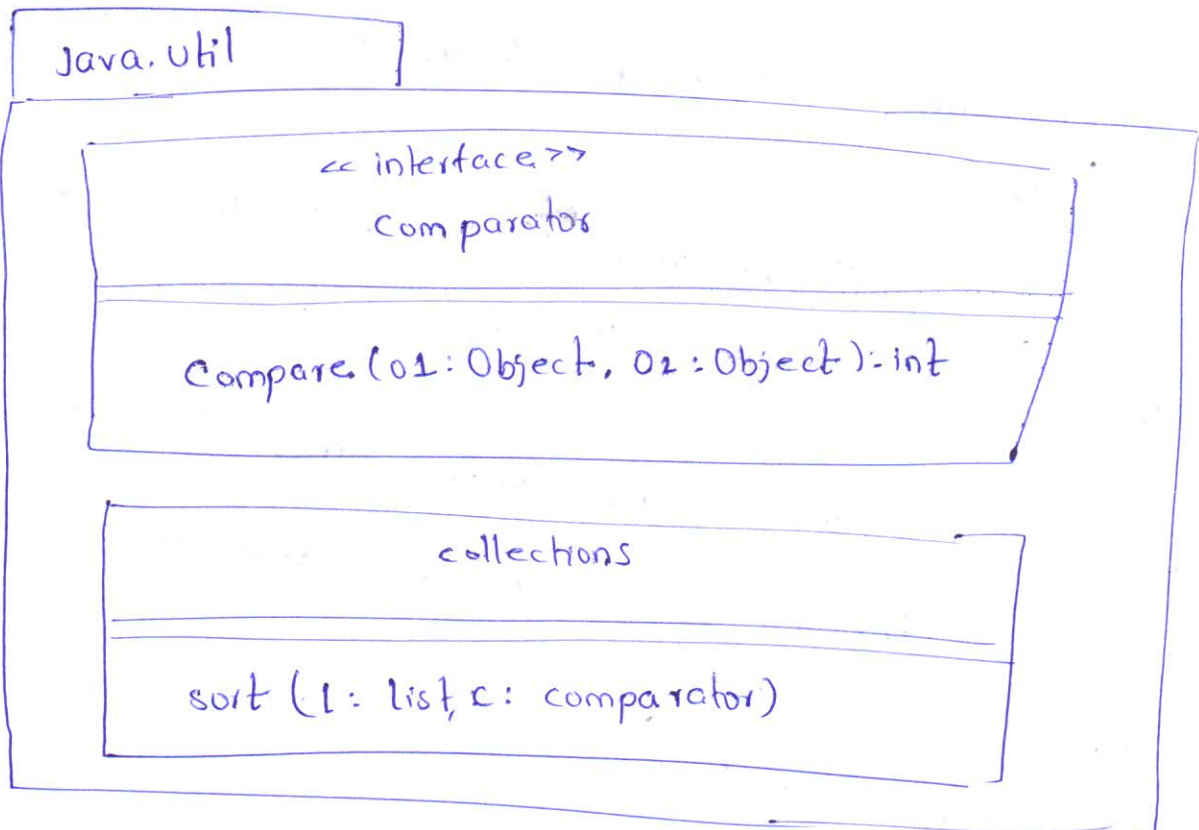 Java.util
<< interface >>
Comparator
Compare (o1: Object, o2 : Object): int
collections
sort (l: list, c: comparator)